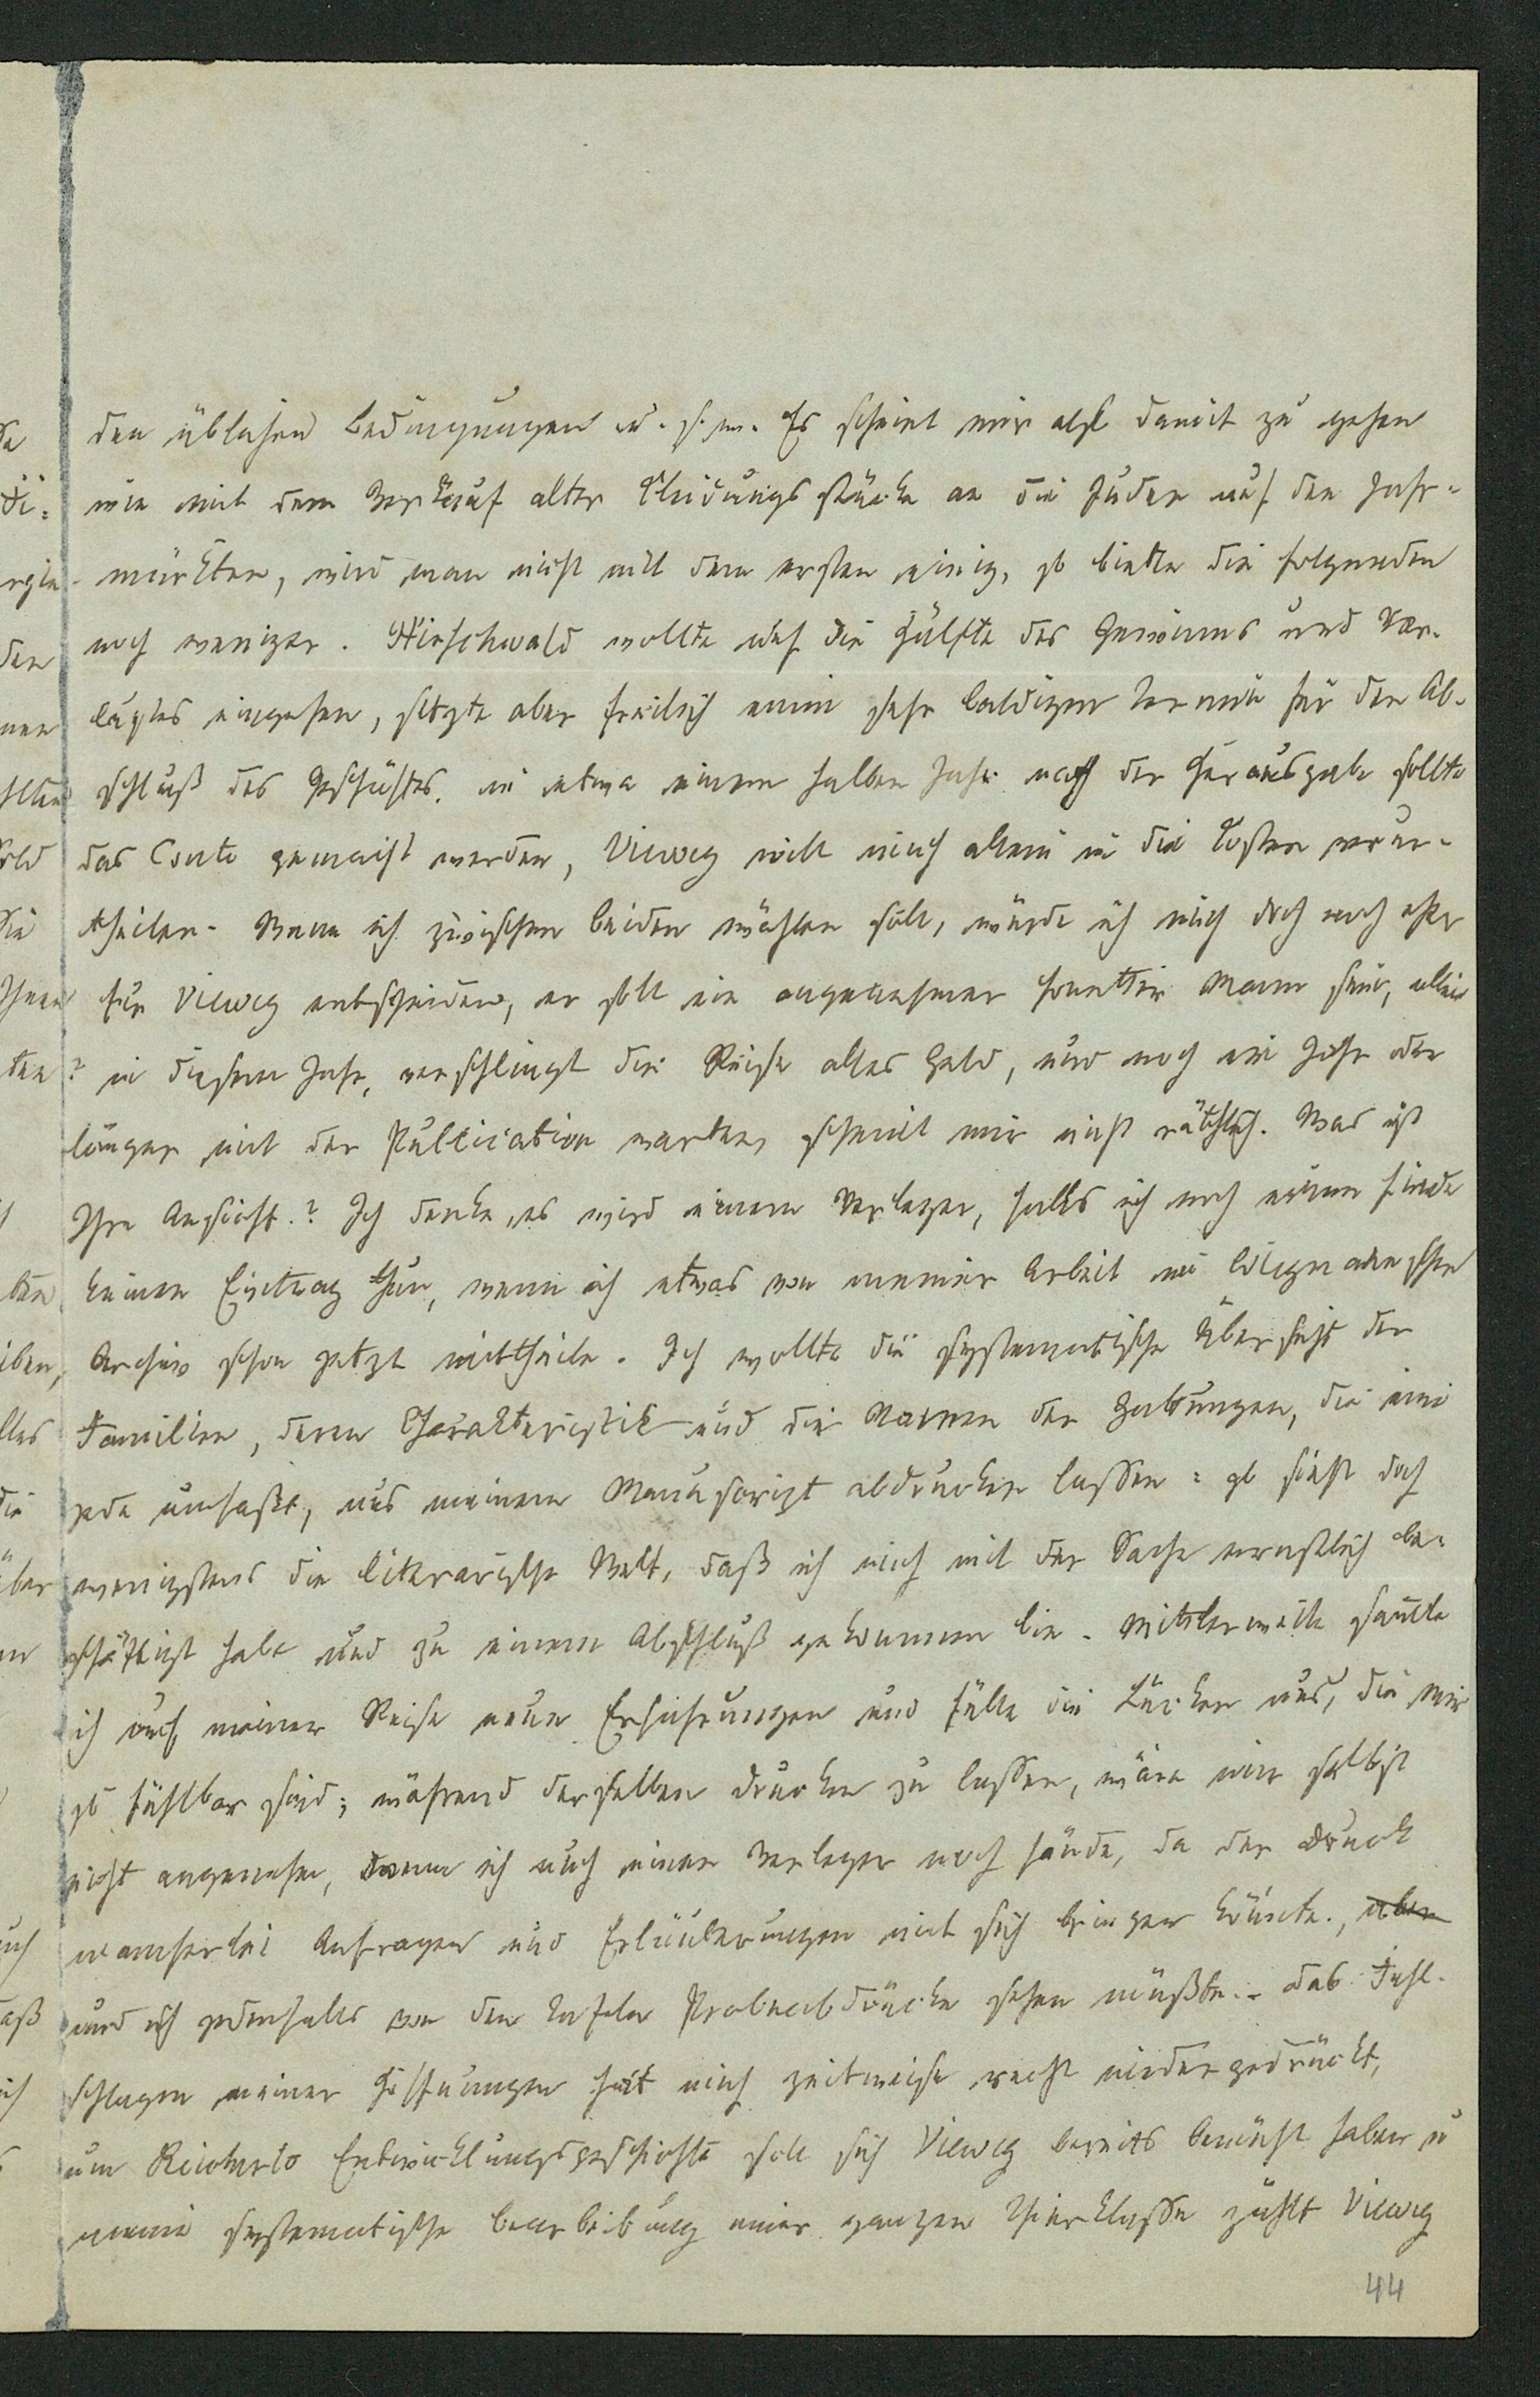 den üblichen Bedingungen u. s. w. Es scheint mir also damit zu gehen
wie mit dem Verkauf alter Kleidungsstücke an die Juden auf den Jahr-
märkten, wird man nicht mit dem ersten einig, so bieten die folgenden
noch weniger. Hirschwald wollte auf die Hälfte des Gewinns und Ver-
lustes eingehen, setzte aber freilich einen sehr baldigen Termin für den Ab-
schluß des Geschäftes, in etwa einem halben Jahr nach der Herausgabe sollte
das Conto gemacht werden, Vieweg will mich allein in die Kosten verur-
theilen. Wenn ich zwischen beiden wählen soll, würde ich mich doch noch eher
für Vieweg entscheiden, er soll ein angenehmer Mann sein, allein
in diesem Jahr verschlingt die Reise alles Geld, und noch ein Jahr oder
länger mit der Publication warten, scheint mir nicht räthlich. Was ist
Ihre Ansicht? Ich denke, es wird einem Verleger, falls ich noch einen finde
keinen Eintrag thun, wenn ich etwas von meiner Arbeit im Wiegmannschen
Archiv schon jetzt mittheile. Ich wollte die systematische Übersicht der
Familien, deren Charakteristik und die Namen der Gattungen, die eine
jede umfaßt, aus meinem Manuscript abdrucken lassen: so sieht doch
wenigstens die literarische Welt, daß ich mich mit der Sache ernstlich be-
schäftigt habe und zu einem Abschluß gekommen bin. Mittlerweile samle
ich auf meiner Reise neue Erfahrungen und fülle die Lücken aus, die mir
so fühlbar sind; während derselben drucken zu lassen, wäre mir selbst
nicht angenehm, wenn ich auch einen Verleger noch fände, da der Druck
mancherlei Anfragen und Erläuterungen mit sich bringen könnte, aber
und ich jedenfalls von den Tafeln Probeabdrücke sehen müßte. – Das Fehl-
schlagen meiner Hoffnungen hat mich zeitweise recht niedergedrückt,
um Reicherts Entwicklungsgeschichte soll sich Vieweg bereits bemüht haben u
meine systematische Bearbeitung einer ganzen Thierklasse zählt Vieweg
44